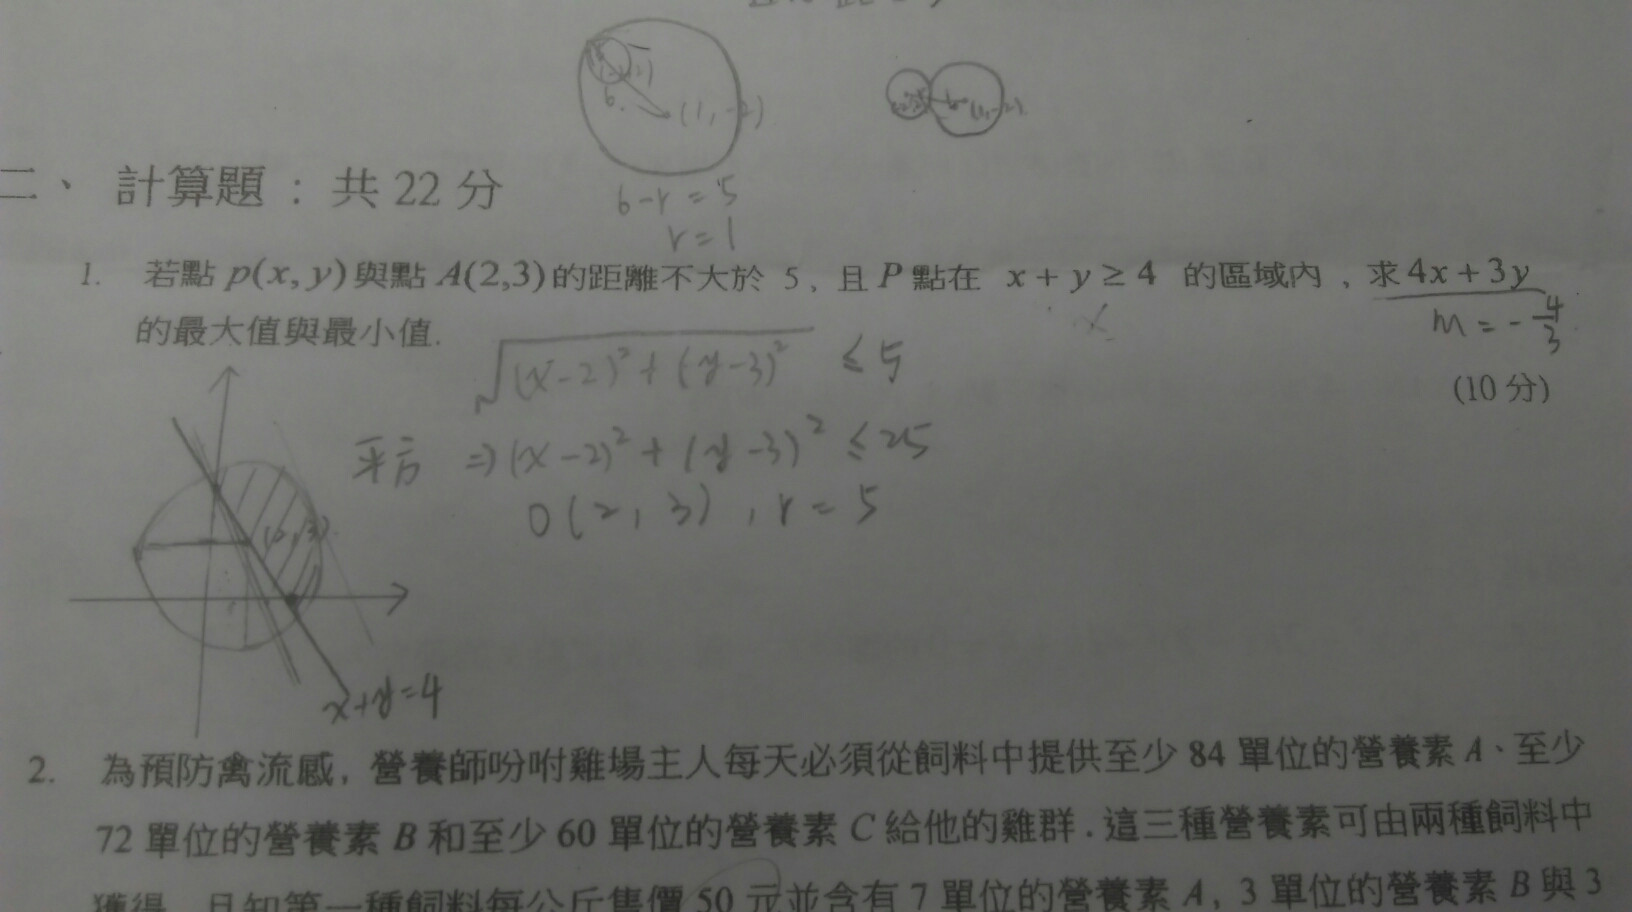 (1,-2)
6
(1,-2)
6-r=5
r=1
二、 計算題 : 共 22 分
1. 若點 p(x, y) 與點 A(2,3) 的距離不大於 5 , 且 P 點在 x + y ≥ 4 的區域內 , 求 4x + 3y
的最大值與最小值.
m = -4/3
√(x-2)²+(y-3)² ≤ 5
(10 分)
平方 ⇒ (x-2)²+(y-3)² ≤ 25
O(2, 3) , r = 5
(2,3)
x+y=4
2. 為預防禽流感, 營養師吩咐雞場主人每天必須從飼料中提供至少 84 單位的營養素 A、至少
72 單位的營養素 B 和至少 60 單位的營養素 C 給他的雞群.這三種營養素可由兩種飼料中
獲得, 且知第一種飼料每公斤售價 50 元並含有 7 單位的營養素 A, 3 單位的營養素 B 與 3